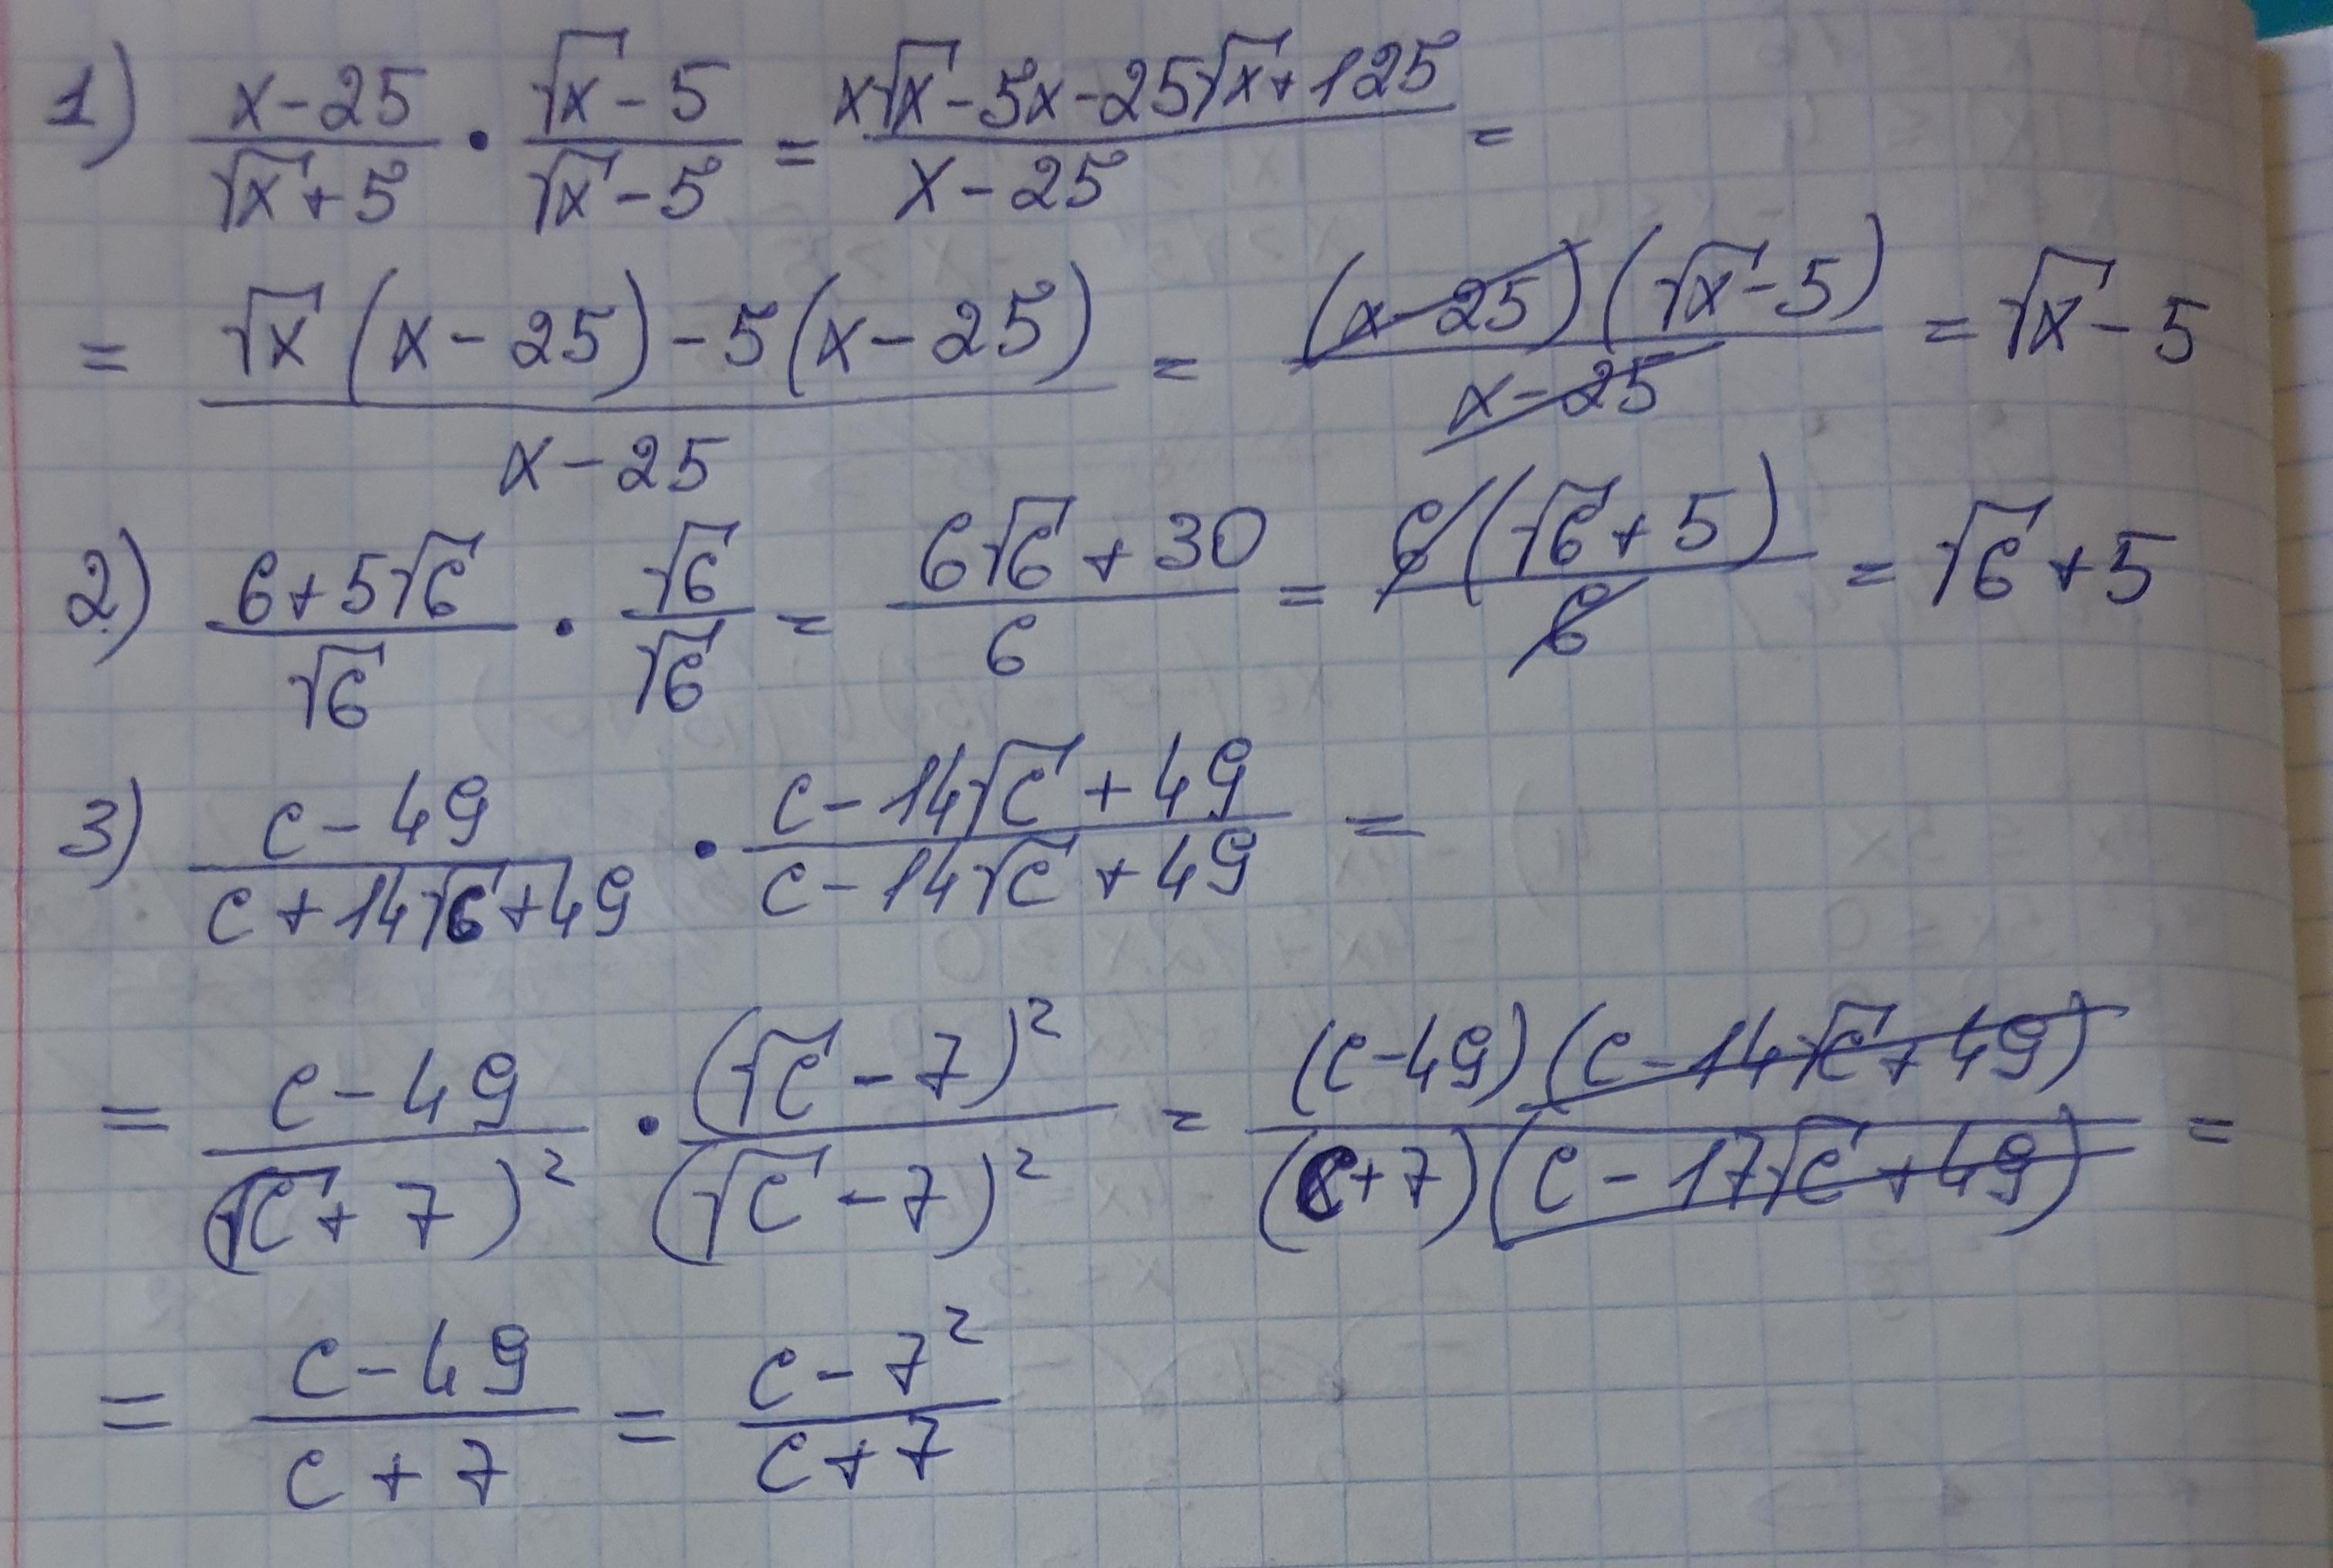 1) (x-25)/(√x+5) · (√x-5)/(√x-5) = (x√x-5x-25√x+125)/(x-25) =
= (√x(x-25)-5(x-25))/(x-25) = ((x-25)(√x-5))/(x-25) = √x-5
2) (6+5√6)/√6 · √6/√6 = (6√6+30)/6 = (6(√6+5))/6 = √6+5
3) (c-49)/(c+14√c+49) · (c-14√c+49)/(c-14√c+49) =
= (c-49)/(√c+7)² · (√c-7)²/(√c-7)² = ((c-49)(c-14√c+49))/((c+7)(c-17√c+49)) =
= (c-49)/(c+7) = (c-7²)/(c+7)